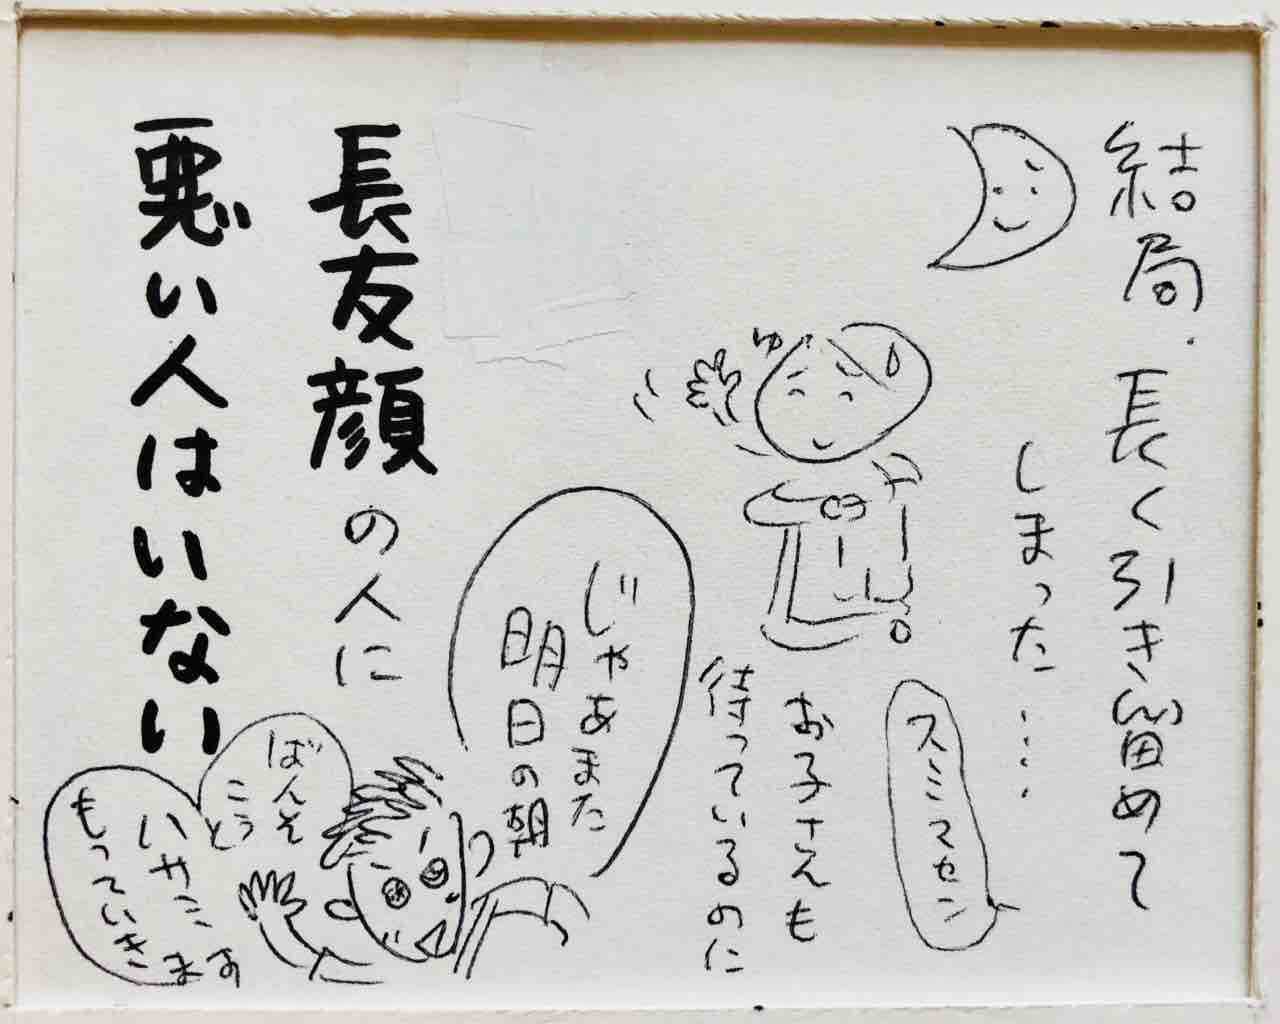 結局、長く引き留めて
しまった……
スミマセン
お子さんも
待っているのに
じゃあまた
明日の朝
長友顔の人に
悪い人はいない
ばんそ
こう
いや、こ
もっていきます